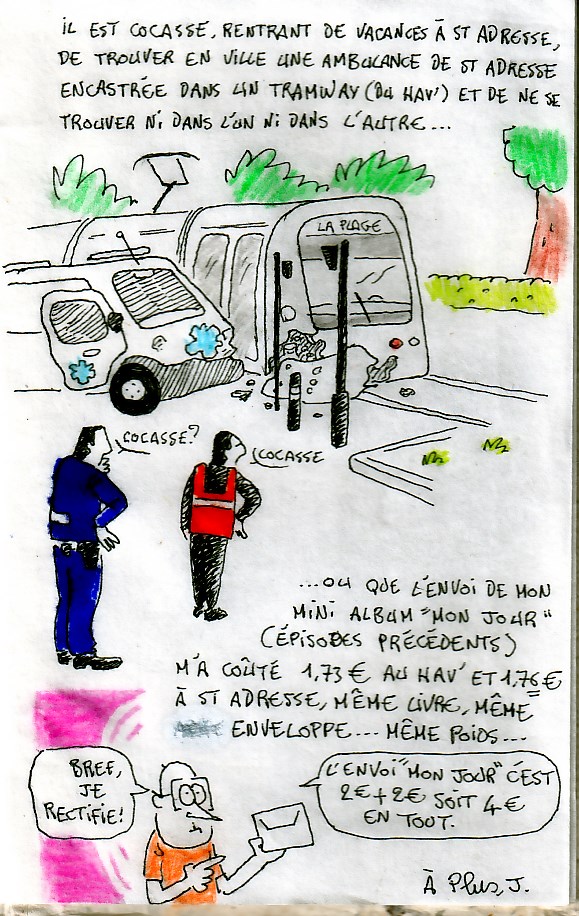 IL EST COCASSE, RENTRANT DE VACANCES À ST ADRESSE,
DE TROUVER EN VILLE UNE AMBULANCE DE ST ADRESSE
ENCASTRÉE DANS UN TRAMWAY (DU HAV') ET DE NE SE
TROUVER NI DANS L'UN NI DANS L'AUTRE...
LA PLAGE
COCASSE?
COCASSE
...OU QUE L'ENVOI DE MON
MINI ALBUM "MON JOUR"
(ÉPISODES PRÉCÉDENTS)
M'A COÛTÉ 1,73 € AU HAV' ET 1,76 €
À ST ADRESSE, MÊME LIVRE, MÊME
ENVELOPPE... MÊME POIDS...
BREF,
JE
RECTIFIE!
L'ENVOI "MON JOUR" C'EST
2€+2€ SOIT 4€
EN TOUT.
À Plus, J.